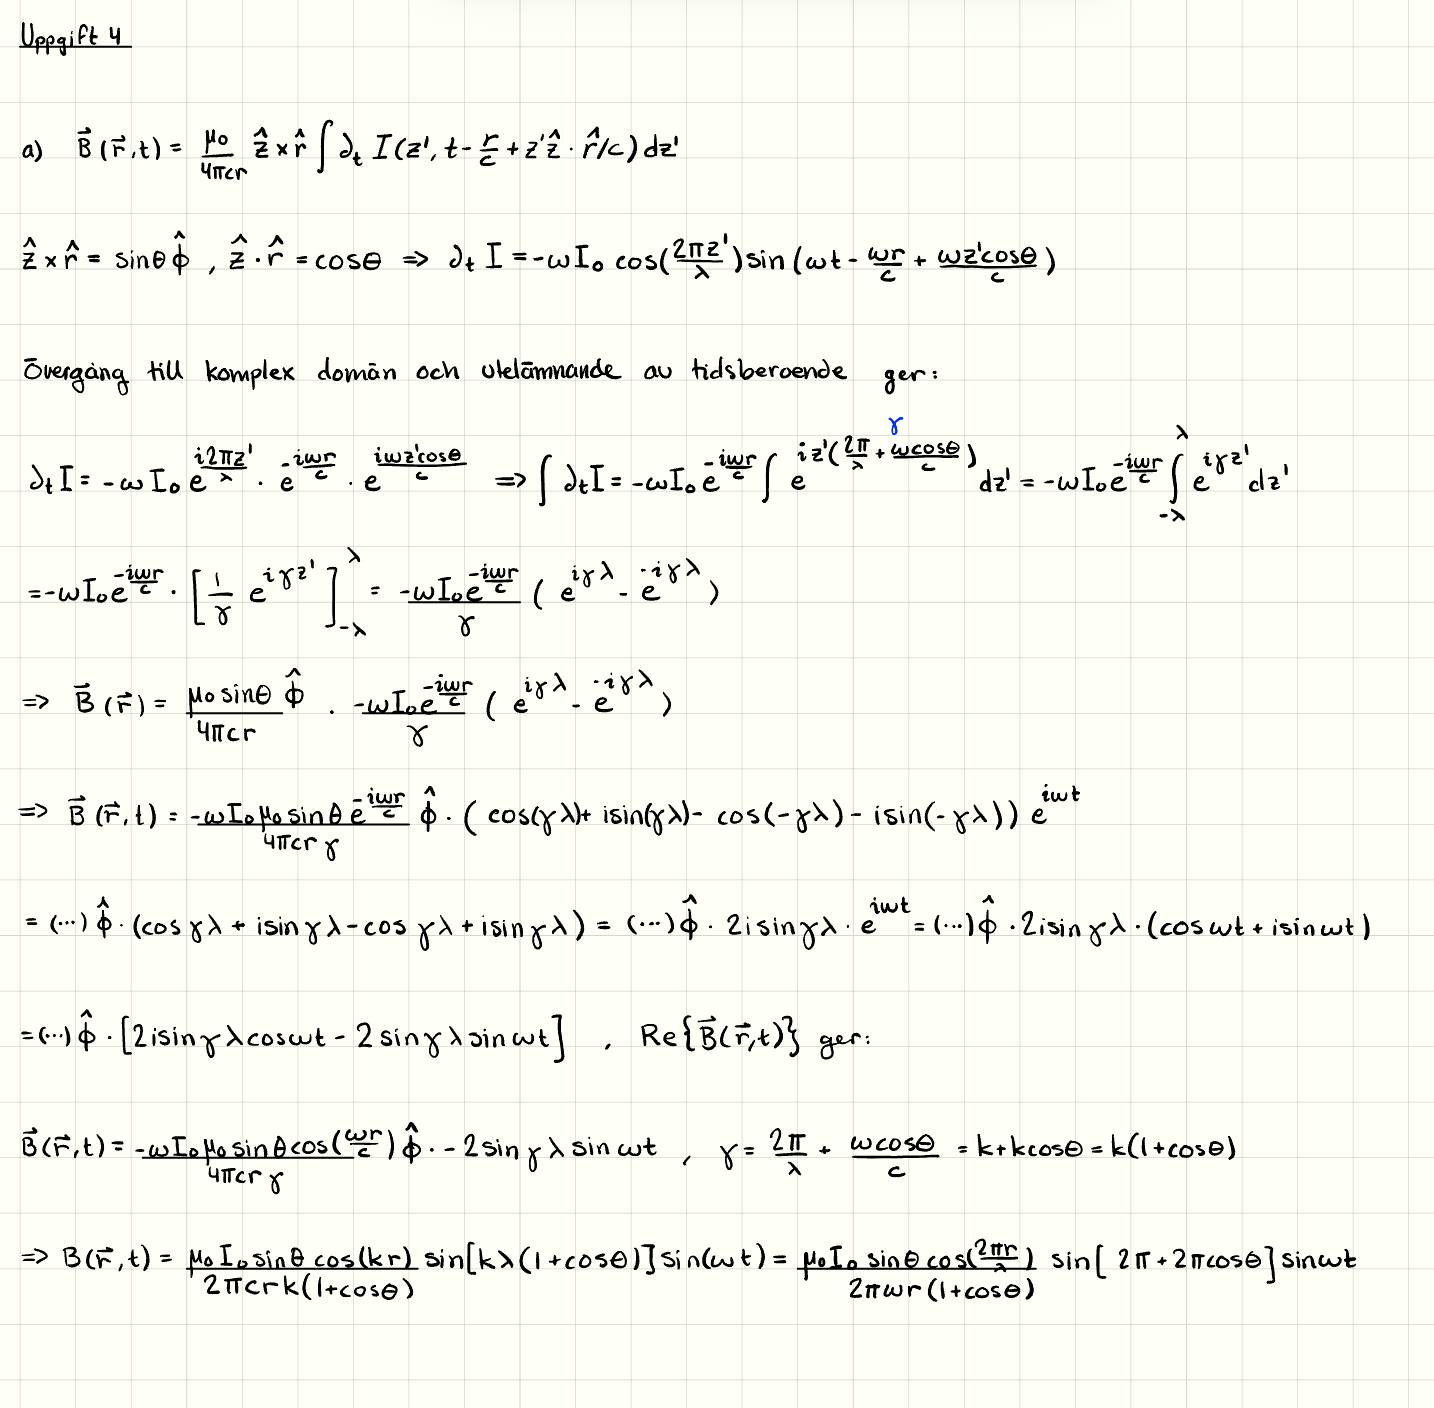 Uppgift 4
a) $\vec{B}(\vec{r},t) = \frac{\mu_0}{4\pi cr} \hat{z} \times \hat{r} \int \partial_t I(z', t - \frac{r}{c} + z'\hat{z} \cdot \hat{r}/c) dz'$
$\hat{z} \times \hat{r} = \sin\theta \hat{\phi}$ , $\hat{z} \cdot \hat{r} = \cos\theta \Rightarrow \partial_t I = -\omega I_0 \cos(\frac{2\pi z'}{\lambda}) \sin(\omega t - \frac{\omega r}{c} + \frac{\omega z' \cos\theta}{c})$
Övergång till komplex domän och utelämnande av tidsberoende ger:
$\partial_t I = -\omega I_0 e^{\frac{i2\pi z'}{\lambda}} \cdot e^{-\frac{i\omega r}{c}} \cdot e^{\frac{i\omega z' \cos\theta}{c}} \Rightarrow \int \partial_t I = -\omega I_0 e^{-\frac{i\omega r}{c}} \int e^{iz'(\overset{\gamma}{\frac{2\pi}{\lambda} + \frac{\omega \cos\theta}{c}})} dz' = -\omega I_0 e^{-\frac{i\omega r}{c}} \int_{-\lambda}^{\lambda} e^{i\gamma z'} dz'$
$= -\omega I_0 e^{-\frac{i\omega r}{c}} \cdot \left[ \frac{1}{\gamma} e^{i\gamma z'} \right]_{-\lambda}^{\lambda} = \frac{-\omega I_0 e^{-\frac{i\omega r}{c}}}{\gamma} ( e^{i\gamma\lambda} - e^{-i\gamma\lambda} )$
$\Rightarrow \vec{B}(\vec{r}) = \frac{\mu_0 \sin\theta \hat{\phi}}{4\pi cr} \cdot \frac{-\omega I_0 e^{-\frac{i\omega r}{c}}}{\gamma} ( e^{i\gamma\lambda} - e^{-i\gamma\lambda} )$
$\Rightarrow \vec{B}(\vec{r},t) = \frac{-\omega I_0 \mu_0 \sin\theta e^{-\frac{i\omega r}{c}}}{4\pi cr \gamma} \hat{\phi} \cdot ( \cos(\gamma\lambda) + i\sin(\gamma\lambda) - \cos(-\gamma\lambda) - i\sin(-\gamma\lambda)) e^{i\omega t}$
$= (\cdots) \hat{\phi} \cdot (\cos\gamma\lambda + i\sin\gamma\lambda - \cos\gamma\lambda + i\sin\gamma\lambda) = (\cdots) \hat{\phi} \cdot 2i\sin\gamma\lambda \cdot e^{i\omega t} = (\cdots) \hat{\phi} \cdot 2i\sin\gamma\lambda \cdot (\cos\omega t + i\sin\omega t)$
$= (\cdots) \hat{\phi} \cdot [2i\sin\gamma\lambda\cos\omega t - 2\sin\gamma\lambda\sin\omega t]$ , $Re\{\vec{B}(\vec{r},t)\}$ ger:
$\vec{B}(\vec{r},t) = \frac{-\omega I_0 \mu_0 \sin\theta \cos(\frac{\omega r}{c})}{4\pi cr \gamma} \hat{\phi} \cdot -2\sin\gamma\lambda \sin\omega t$ , $\gamma = \frac{2\pi}{\lambda} + \frac{\omega\cos\theta}{c} = k + k\cos\theta = k(1+\cos\theta)$
$\Rightarrow B(\vec{r},t) = \frac{\mu_0 I_0 \sin\theta \cos(kr)}{2\pi crk(1+\cos\theta)} \sin[k\lambda(1+\cos\theta)] \sin(\omega t) = \frac{\mu_0 I_0 \sin\theta \cos(\frac{2\pi r}{\lambda})}{2\pi\omega r(1+\cos\theta)} \sin[2\pi + 2\pi\cos\theta] \sin\omega t$